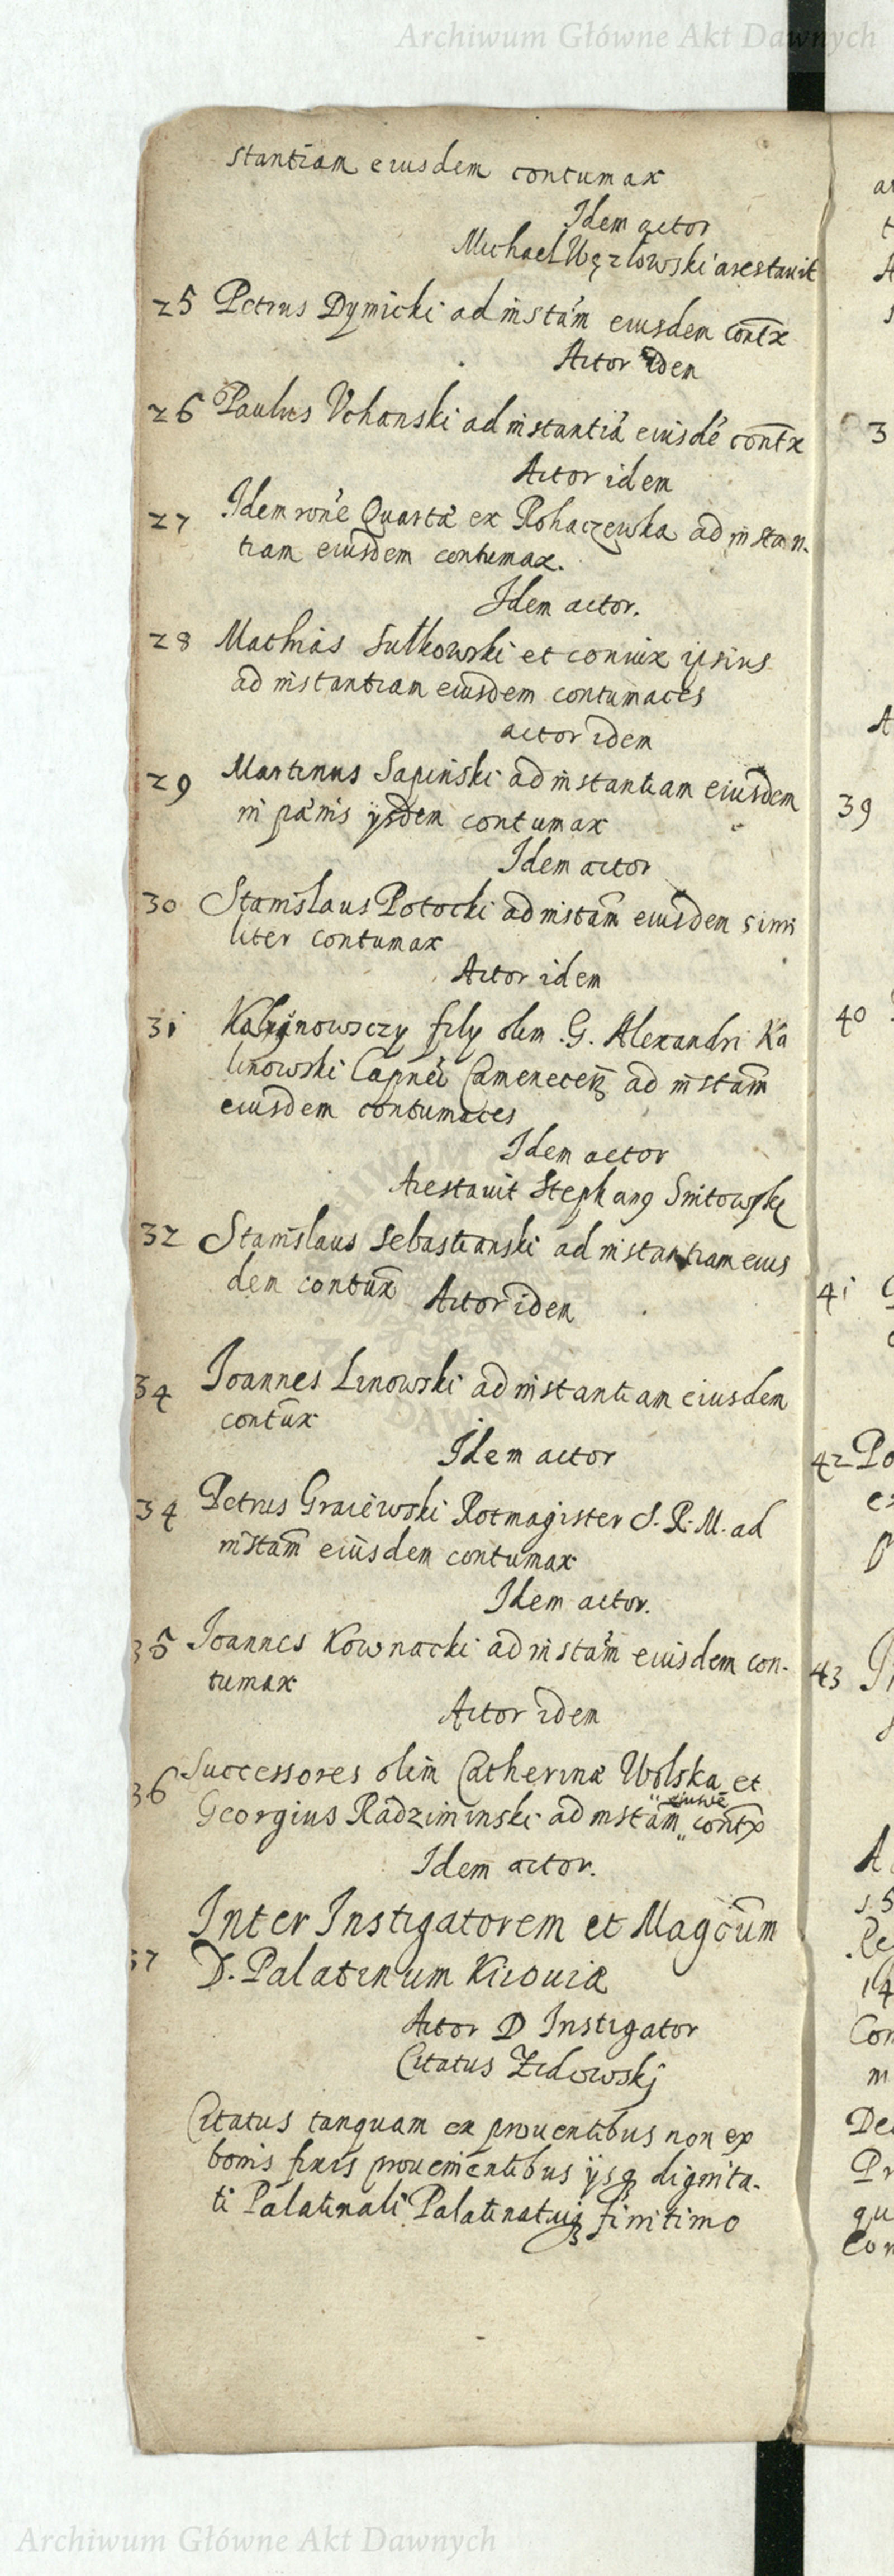 Archiwum Główne Akt Dawnych
stantiam eiusdem contumax
Idem actor
Michael Węzlowski arestauit
25 Petrus Dymicki ad instãm eiusdem contx
Actor idem
26 Paulus Vchanski ad instantiã eiusdẽ contx
Actor idem
27 Idem rone Quarta ex Rohaczewka ad instan-
tiam eiusdem contumax.
Idem actor.
28 Mathias Sulkowski et coniux ipsius
ad instantiam eiusdem contumaces
actor idem
29 Martinus Sapinski ad instantiam eiusdem
in pænis ysdem contumax
Idem actor
30 Stanislaus Potocki ad instam eiusdem simi
liter contumax
Actor idem
31 Kalinowsczy fily olim G. Alexandri Ka
linowski Capnei Camenecen ad instam
eiusdem contumaces
Idem actor
Arestauit Stephang Snitowski
32 Stanislaus Sebastianski ad instantiam eius
dem contux Actor idem
34 Joannes Linowski ad instantiam eiusdem
contux
Idem actor
34 Petrus Graiewski Rotmagister S. R. M. ad
instam eiusdem contumax
Idem actor.
35 Joannes Kownacki ad instam eiusdem con-
tumax
Actor idem
36 Successores olim Catherinæ Wolska et
Georgius Radziminski ad instam contx
Idem actor.
Inter Instigatorem et Magcum
37 D. Palatinum Kiiouiæ
Actor D Instigator
Citatus Zidowskj
Citatus tanquam ex prouentibus non ex
bonis fixis prouenientibus ysq dignita-
ti Palatinali Palatinatuiq finitimo
39
40
41
42 Po
43
Archiwum Główne Akt Dawnych